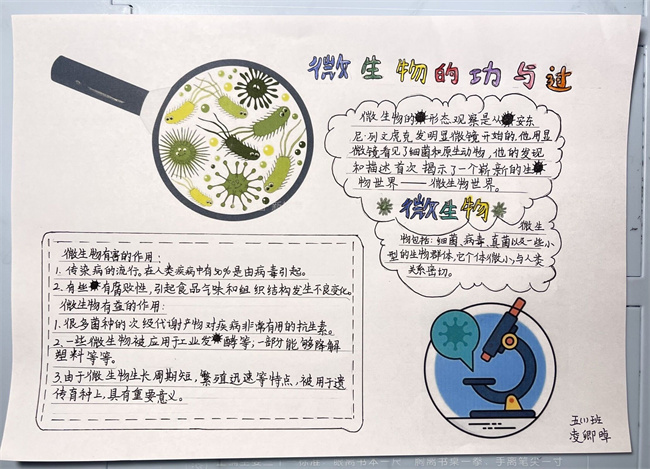 微生物的功与过
微生物的形态观察是从安东
尼·列文虎克发明显微镜开始的,他用显
微镜看见了细菌和原生动物,他的发现
和描述首次揭示了一个崭新的生
物世界——微生物世界。
微生物
微生
物包括:细菌、病毒、真菌以及一些小
型的生物群体,它个体微小,与人类
关系密切。
微生物有害的作用:
1.传染病的流行,在人类疾病中有50%是由病毒引起。
2.有些有腐败性,引起食品气味和组织结构发生不良变化。
微生物有益的作用:
1.很多菌种的次级代谢产物对疾病非常有用的抗生素。
2.一些微生物被应用于工业发酵等;一部分能够降解
塑料等等。
3.由于微生物生长周期短,繁殖迅速等特点,被用于遗
传育种上,具有重要意义。
五(1)班
凌卿晫